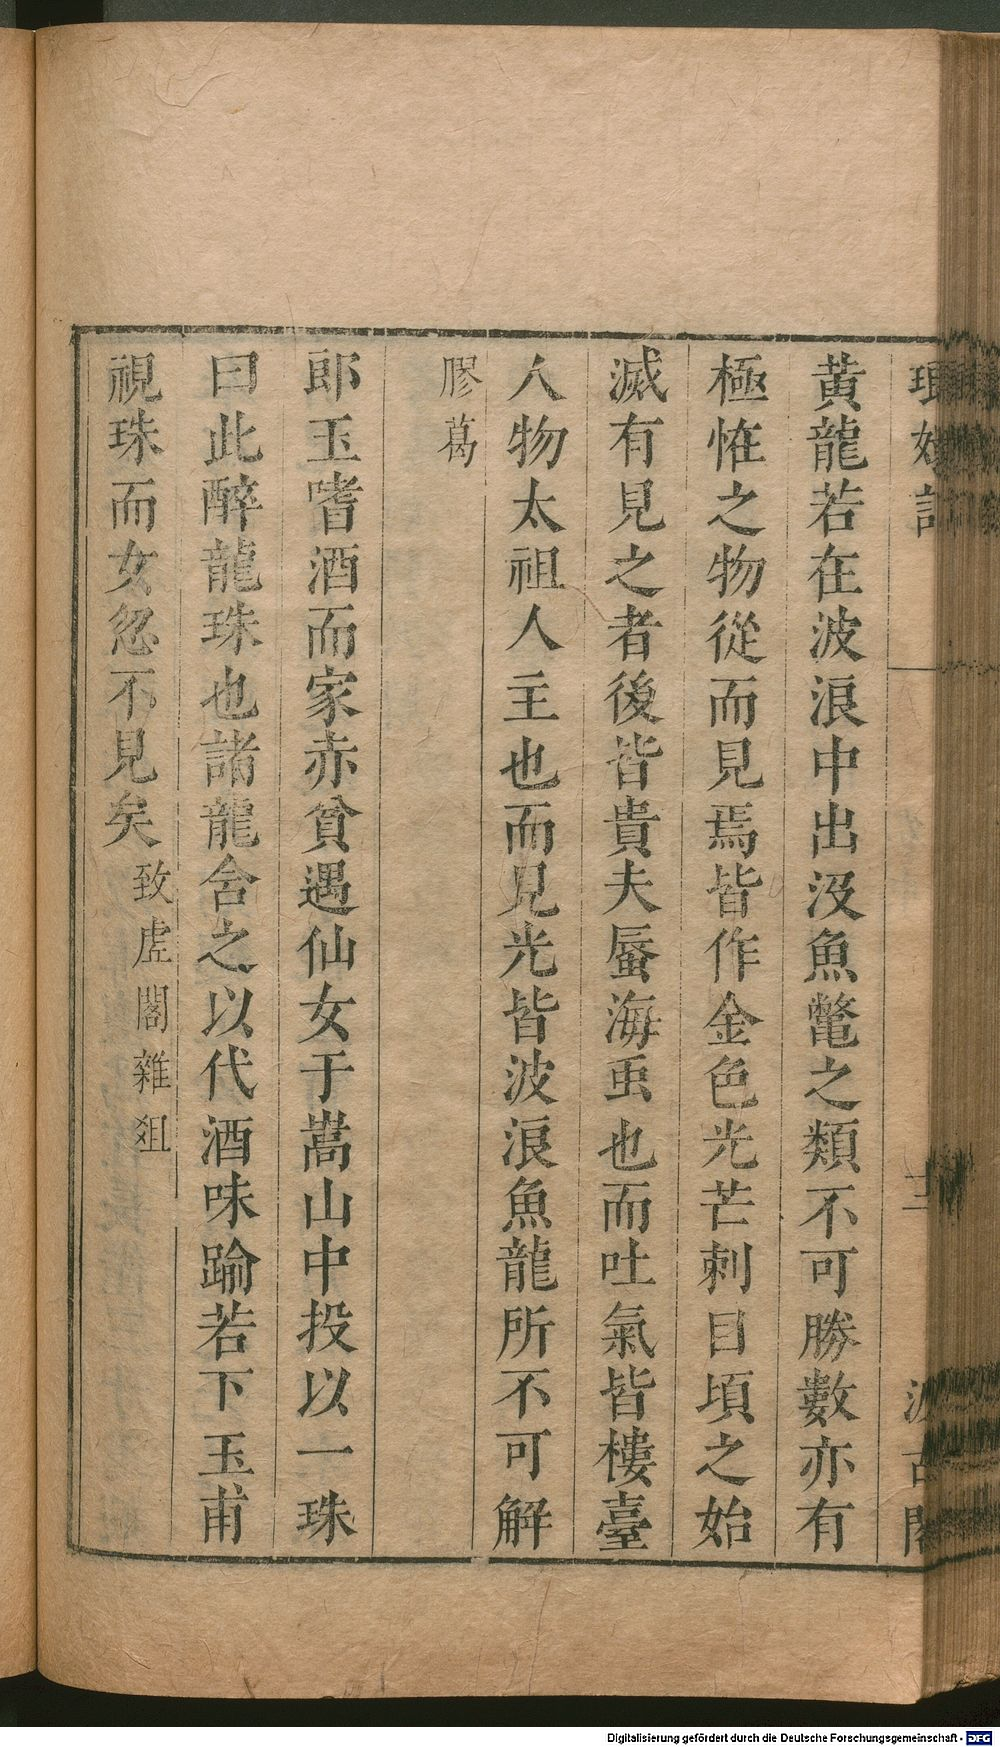 瑯嬛記
十二
汲古閣
黃龍若在波浪中出沒魚鼈之類不可勝數亦有
極恠之物從而見焉皆作金色光芒刺目頃之始
滅有見之者後皆貴夫蜃海䖝也而吐氣皆樓臺
人物太祖人主也而見光皆波浪魚龍所不可解
膠葛
郎玉嗜酒而家赤貧遇仙女于嵩山中投以一珠
曰此醉龍珠也諸龍含之以代酒味踰若下玉甫
視珠而女忽不見矣致虛閣雜俎
Digitalisierung gefördert durch die Deutsche Forschungsgemeinschaft - DFG